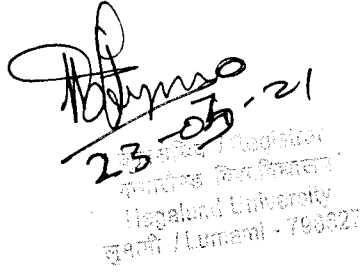 23-05-21
कुलसचिव / Registrar
नागालैण्ड विश्वविद्यालय
Nagaland University
लुमामी / Lumami - 798627